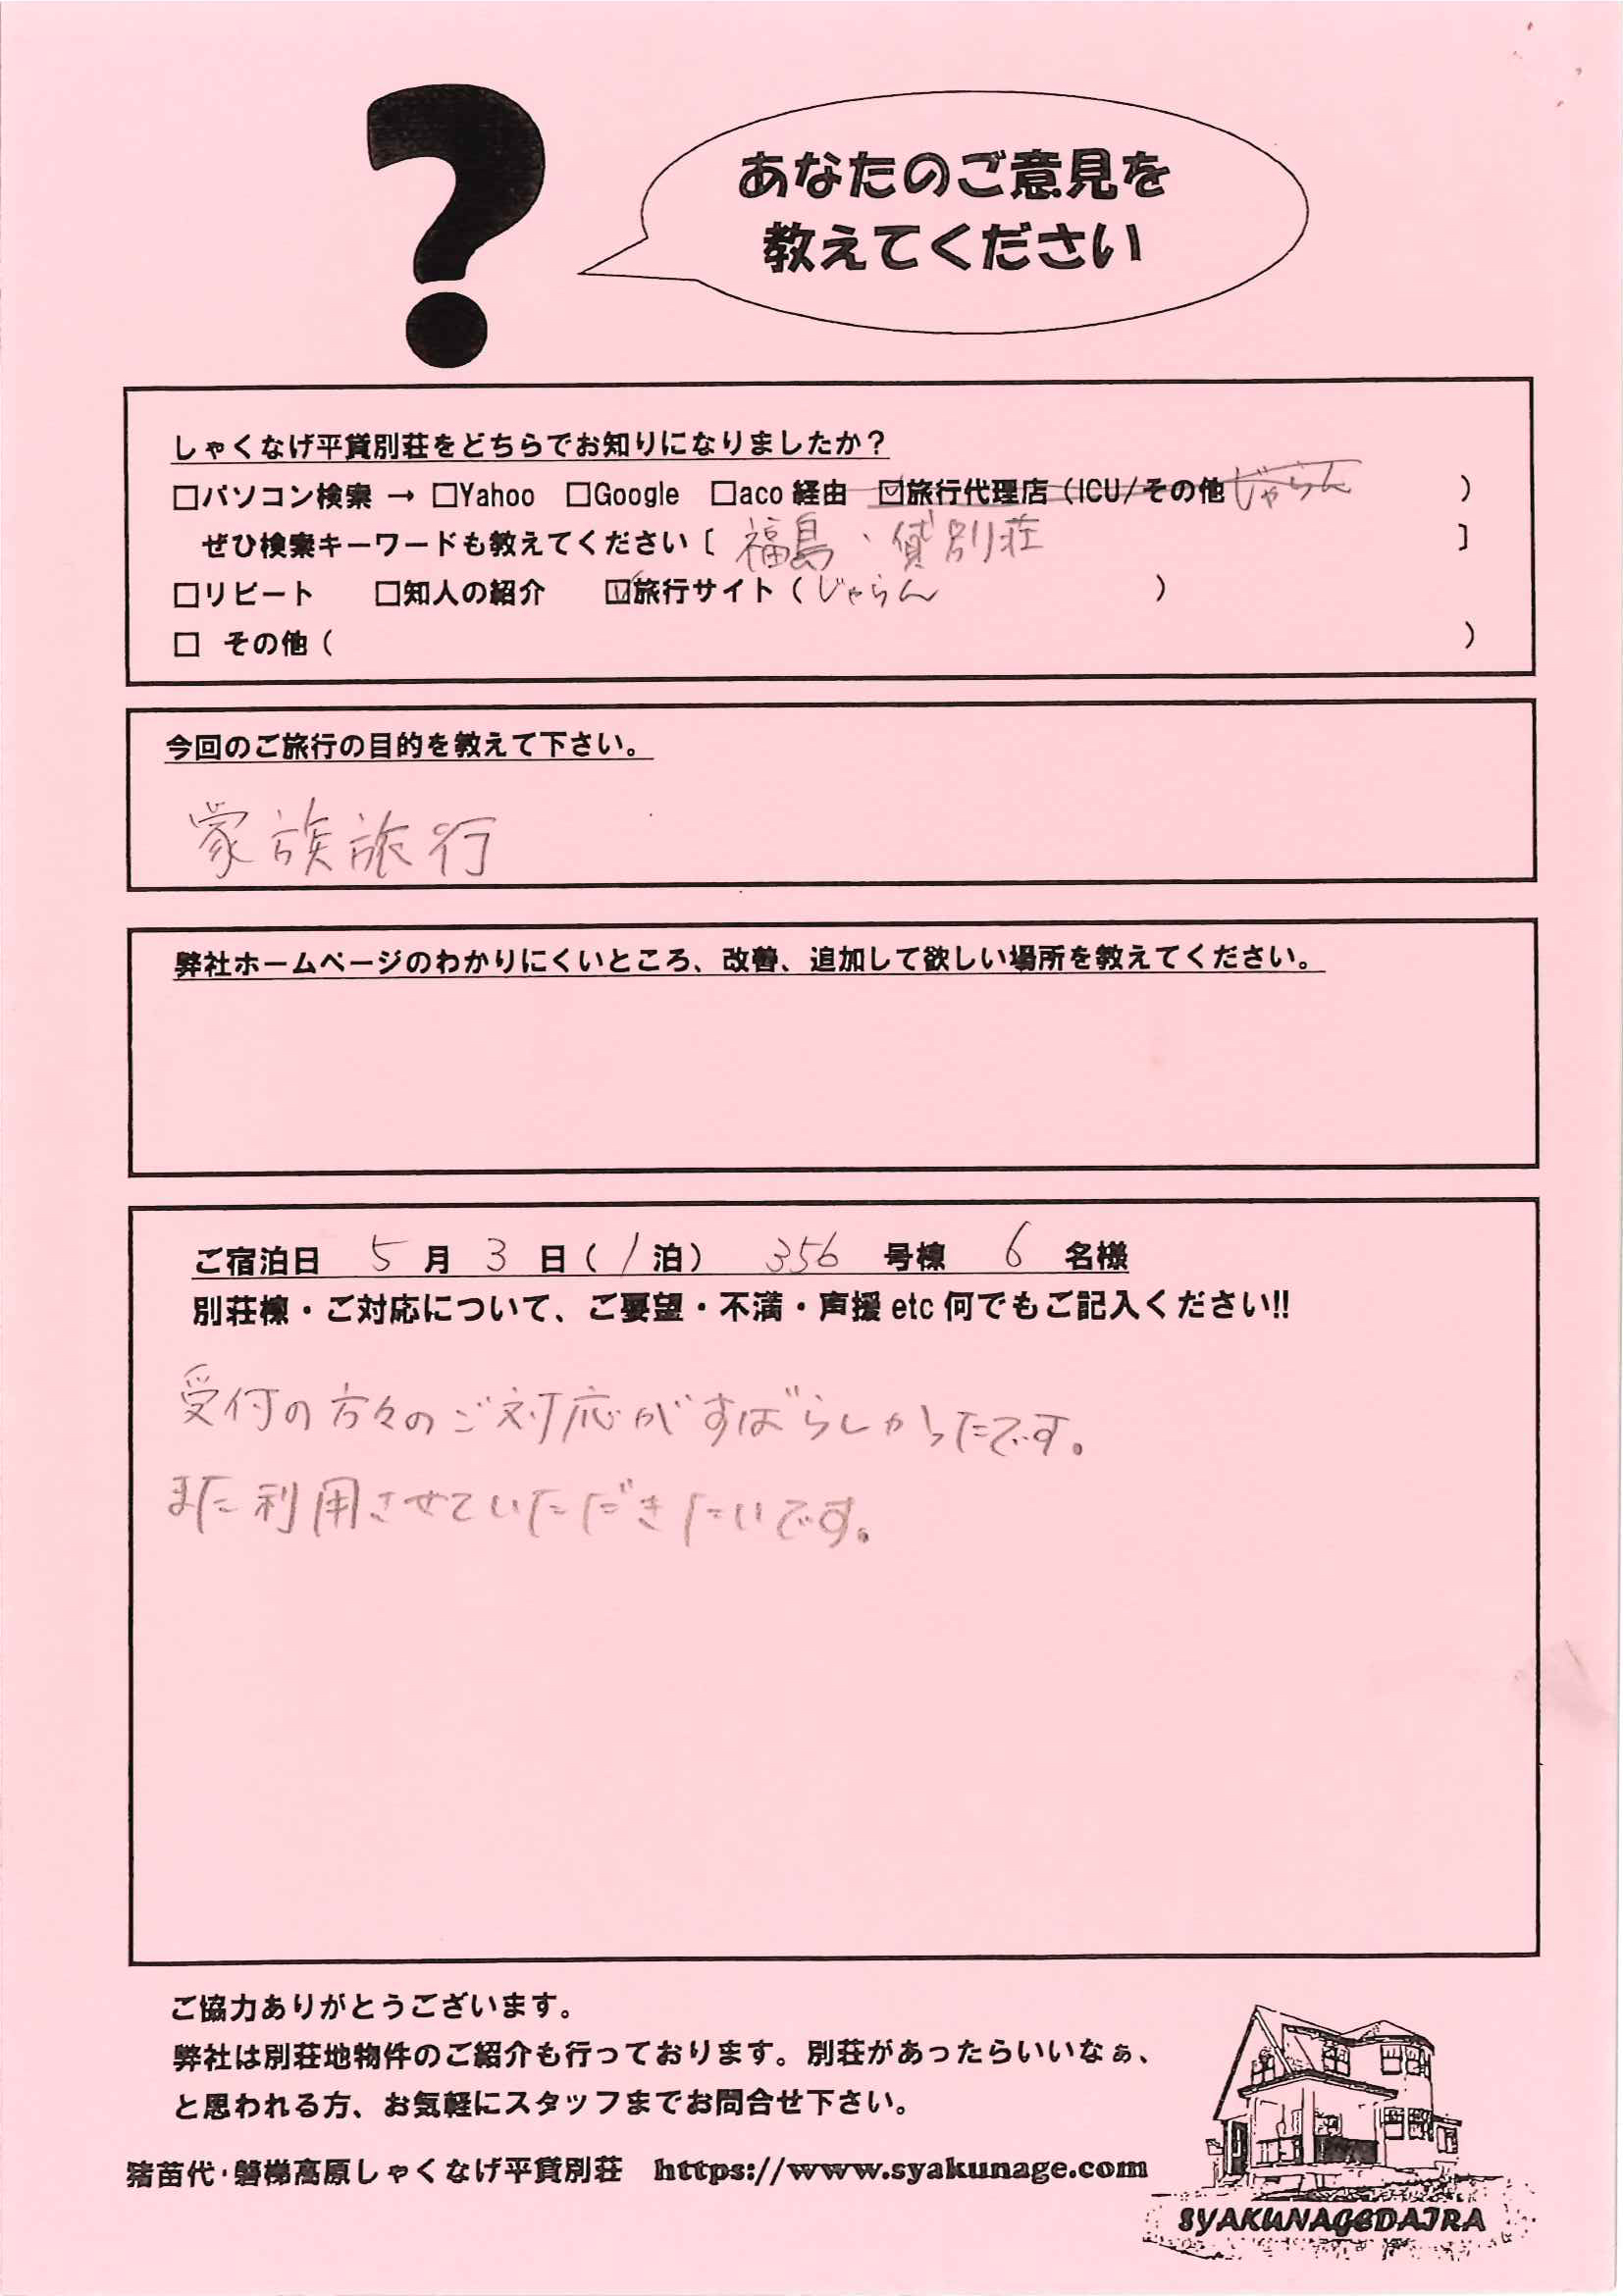 あなたのご意見を
教えてください
しゃくなげ平貸別荘をどちらでお知りになりましたか？
□パソコン検索 → □Yahoo □Google □aco 経由 ☑旅行代理店（ICU/その他 じゃらん ）
ぜひ検索キーワードも教えてください〔 福島、貸別荘 〕
□リピート □知人の紹介 ☑旅行サイト（じゃらん ）
□ その他（ ）
今回のご旅行の目的を教えて下さい。
家族旅行
弊社ホームページのわかりにくいところ、改善、追加して欲しい場所を教えてください。
ご宿泊日 5 月 3 日（ 1 泊） 356 号棟 6 名様
別荘棟・ご対応について、ご要望・不満・声援 etc 何でもご記入ください!!
受付の方々のご対応がすばらしかったです。
また利用させていただきたいです。
ご協力ありがとうございます。
弊社は別荘地物件のご紹介も行っております。別荘があったらいいなぁ、
と思われる方、お気軽にスタッフまでお問合せ下さい。
猪苗代・磐梯高原しゃくなげ平貸別荘 https://www.syakunage.com
SYAKUNAGEDAIRA